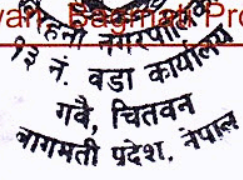 Bagmati Pro
नगरपालिका
१३ नं. वडा कार्यालय
गवै, चितवन
बागमती प्रदेश, नेपाल